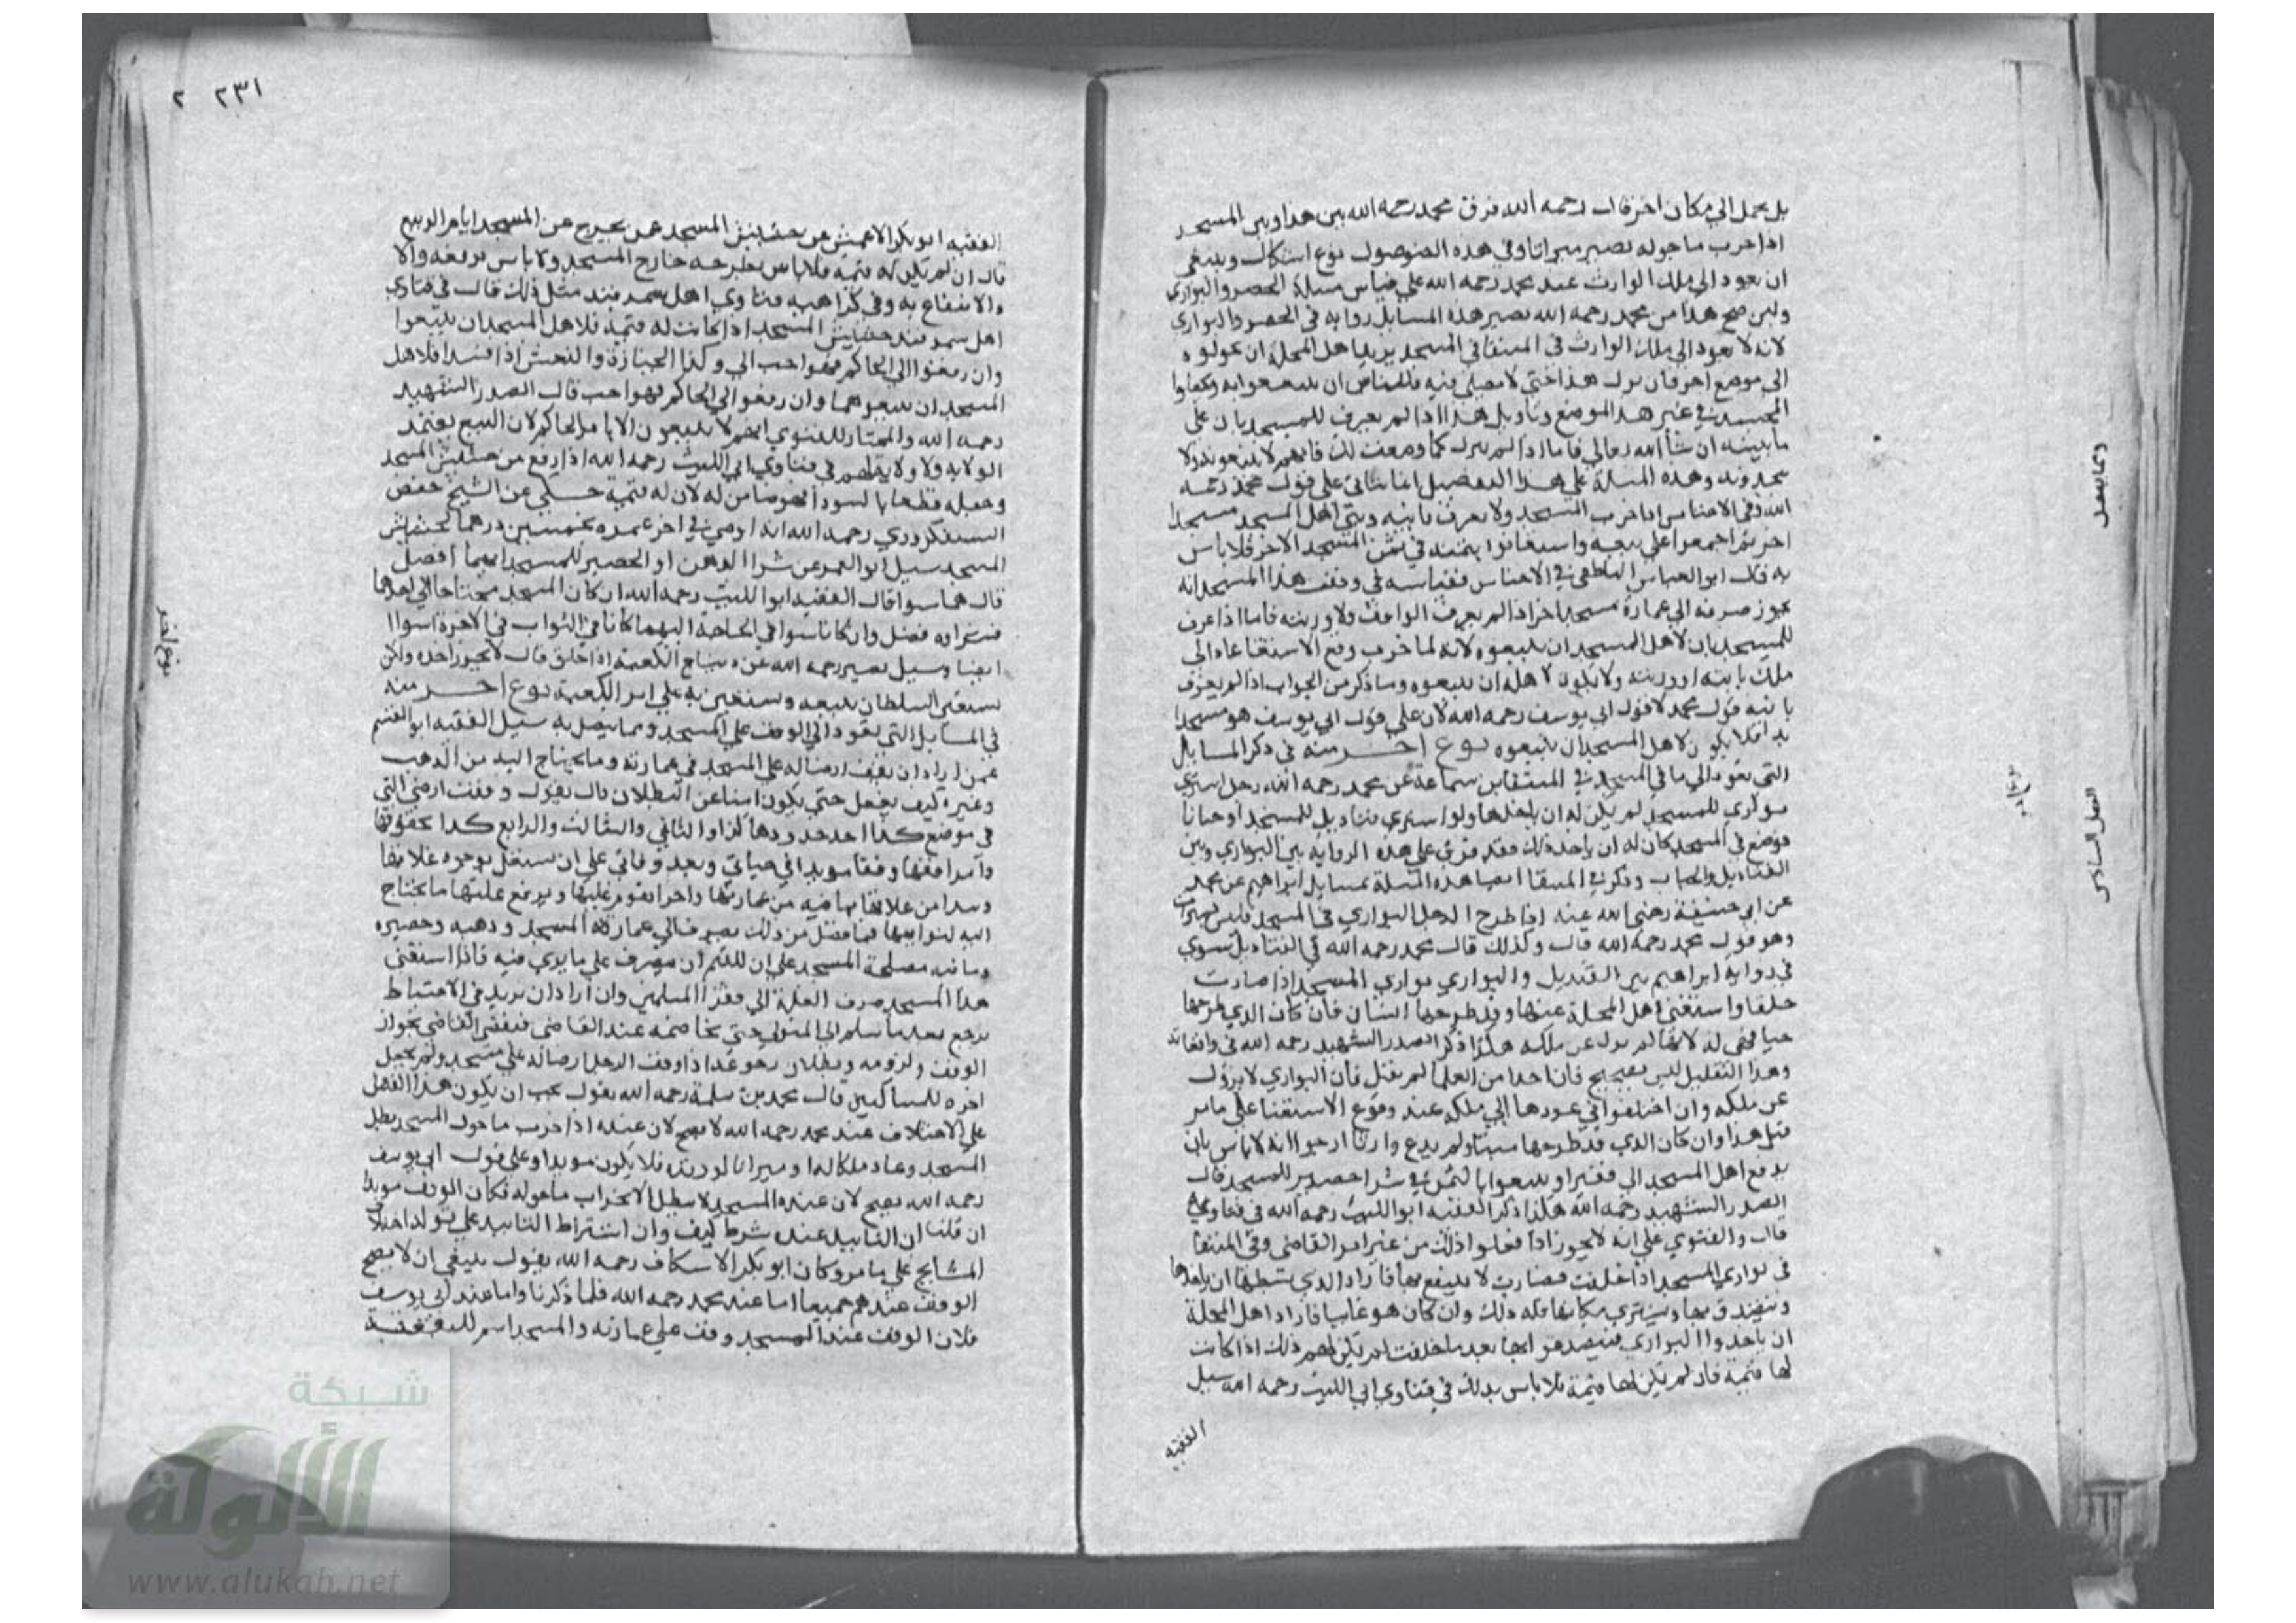 بل يحمل الي مكان اخر قال رحمه الله فرق محمد رحمه الله بين هذا وبين المسجد
اذا خرب ما حوله يصير ميراثا وفي هذه الفصول نوع اشكال وينبغي
ان يعود الي ملك الوارث عند محمد رحمه الله علي قياس مسئلة الحصر والبواري
ولين صح هذا من محمد رحمه الله يصير هذه المسايل رواية في الحصر والبواري
لانه لا يعود الي ملك الوارث في المنتقا في المسجد يريد اهل المحلة ان يحولوه
الي موضع اخر فان ترك هذا حتي لا يصلي فيه فللناس ان ينتفعوا به
في غير هذا الموضع وتاويل هذا اذا لم يعرف للمسجد بان علي
ما نبينه ان شا الله تعالي فاما اذا لم يترك كما وصفت لك فانهم لا يبيعونه ولا
وهذه المسئلة علي هذا التفصيل انما تتاتي علي قول محمد رحمه
الله وفي الاجناس اذا خرب المسجد ولا يعرف بانيه وبني اهل المسجد مسجدا
اخر ثم اجمعوا علي بيعه واستعانوا بثمنه في ثمن المسجد الاخر فلا باس
به قال ابو العباس الناطفي في الاجناس فقياسه في وقف هذا المسجد انه
يجوز صرفه الي عمارة مسجد اخر اذا لم يعرف الواقف ولا ورثته فاما اذا عرف
للمسجد بان لاهل المسجد ان يبيعوه لانه لما خرب وقع الاستغنا عاد الي
ملك بانيه او ورثته ولا يكون لاهله ان يبيعوه وما ذكر من الجواب اذا لم يعرف
بانيه قول محمد لا قول ابي يوسف رحمه الله لان علي قول ابي يوسف هو مسجد
ابدا فلا يكون لاهل المسجد ان يبيعوه نوع اخر منه في ذكر المسايل
التي تعود الي ما في المسجد في المنتقا ابن سماعة عن محمد رحمه الله رجل اشتري
بواري للمسجد لم يكن له ان ياخذها ولو اشتري قناديل للمسجد او حبابا
فوضع في المسجد كان له ان ياخذ ذلك فقد فرق علي هذه الرواية بين البواري وبين
القناديل والحباب وذكر في المنتقا ايضا هذه المسئلة بمسايل ابراهيم عن محمد
عن ابي حنيفة رضي الله عنه اذا طرح الرجل البواري في المسجد فليس
وهو قول محمد رحمه الله قال وكذلك قال محمد رحمه الله في القناديل سوي
في رواية ابراهيم بين القنديل والبواري بواري المسجد اذا صارت
خلقا واستغني اهل المحلة عنها وقد طرحها انسان فان كان الذي طرحها
حيا فهي له لانها لم تزل عن ملكه هكذا ذكر الصدر الشهيد رحمه الله في واقعاته
وهذا التعليل ليس بصحيح فان احدا من العلما لم يقل فان البواري لا تزول
عن ملكه وان اختلفوا في عودها الي ملكه عند وقوع الاستغنا علي ما مر
قبل هذا وان كان الذي قد طرحها ميتا ولم يدع وارثا ارجوا انه لا باس بان
يدفع اهل المسجد الي فقير او يبيعوا بالثمن في شرا حصير للمسجد قال
الصدر الشهيد رحمه الله هكذا ذكر الفقيه ابو الليث رحمه الله في فتاويه
قال والفتوي علي انه لا يجوز اذا فعلوا ذلك من غير امر القاضي وفي المنتقا
في بواري المسجد اذا خلقت فصارت لا ينتفع بها فاراد الذي بسطها ان ياخذها
ويتصدق بها ويشتري مكانها فله ذلك وان كان هو غايبا فاراد اهل المحلة
ان ياخذوا البواري فيتصدقوا بها بعد ما خلقت لم يكن لهم ذلك اذا كانت
لها قيمة فان لم يكن لها قيمة فلا باس بذلك في فتاوي ابي الليث رحمه الله سيل
الفقيه
الفصل السادس
٢٣١ ٢
الفقيه ابو بكر الاعمش عن حشيش المسجد عمن يخرج عن المسجد ايام الربيع
قال ان لم يكن له قيمة فلا باس بطرحه خارج المسجد ولا باس برفعه والا
والانتفاع به وفي كراهية فتاوي اهل سمرقند مثل ذلك قال في فتاوي
اهل سمرقند حشيش المسجد اذا كانت له قيمة فلاهل المسجد ان يبيعوا
وان رفعوا الي الحاكم فهو احب الي وكذا الجنازة والنعش اذا فسدا فلاهل
المسجد ان يبيعوهما وان رفعوا الي الحاكم فهو احب قال الصدر الشهيد
رحمه الله والمختار للفتوي انهم لا يبيعون الا بامر الحاكم لان البيع يعتمد
الولاية ولا ولاية لهم في فتاوي ابي الليث رحمه الله اذا رفع من حشيش المسجد
وجعله قطعا بالسودا فهو ضامن له لان له قيمة حكي عن الشيخ حفص
السفكردري رحمه الله انه اوصي في اخر عمره بخمسين درهما لحشيش
المسجد سيل ابو القسم عن شرا الدهن او الحصير للمسجد ايهما افضل
قال هما سوا قال الفقيه ابو الليث رحمه الله ان كان المسجد محتاجا الي احدهما
فشراوه افضل وان كانا سوا في الحاجة اليهما كانا في الثواب في الاخرة سوا
ايضا وسيل نصير رحمه الله عن ديباج الكعبة اذا خلق قال لا يجوز اخذه ولكن
السلطان يبيعه ويستعين به علي امر الكعبة نوع اخر منه
في المسايل التي تعود الي الوقف علي المسجد وما يتصل به سيل الفقيه ابو القسم
عمن اراد ان يقف ارضا له علي المسجد في عمارته وما يحتاج اليه من الدهن
وغيره كيف يفعل حتي يكون امنا عن البطلان قال يقول وقفت ارضي التي
في موضع كذا احد حدودها كذا والثاني والثالث والرابع كذا بحقوقها
ومرافقها وقفا موبدا في حياتي وبعد وفاتي علي ان يستغل بوجوه غلاتها
ويبدا من غلاتها بما فيه من عمارتها واجر القوام عليها ويرفع غلتها ما يحتاج
اليه لنوايبها فما فضل من ذلك يصرف الي عمارة المسجد ودهنه وحصيره
وما فيه مصلحة المسجد علي ان للقيم ان يصرف علي ما يري فيه فاذا استغني
هذا المسجد صرف الغلة الي فقرا المسلمين وان اراد ان يزيد في الاحتياط
يرجع بعد ما سلم الي المتولي حتي يخاصمه عند القاضي فيقضي القاضي بجواز
الوقف ولزومه وبطلان رجوعه اذا وقف الرجل ارضا له علي مسجد ولم يجعل
اخره للمساكين قال محمد بن سلمة رحمه الله يقول يجب ان يكون هذا الفصل
علي الاختلاف عند محمد رحمه الله لا يصح لان عنده اذا خرب ما حول المسجد يبطل
المسجد وعاد ملكا له او ميراثا لورثته فلا يكون موبدا وعلي قول ابي يوسف
رحمه الله يصح لان عنده المسجد لا يبطل بخراب ما حوله فكان الوقف موبدا
ان قلنا ان التابيد عنده شرط كيف وان اشتراط التابيد علي قوله اختلاف
المشايخ علي ما مر وكان ابو بكر الاسكاف رحمه الله يقول ينبغي ان لا يصح
الوقف عندهم جميعا اما عند محمد رحمه الله فلما ذكرنا واما عند ابي يوسف
فلان الوقف عند المسجد وقف علي عمارته والمسجد اسم للبقعة
نوع اخر
شبكة
الألوكة
www.alukah.net